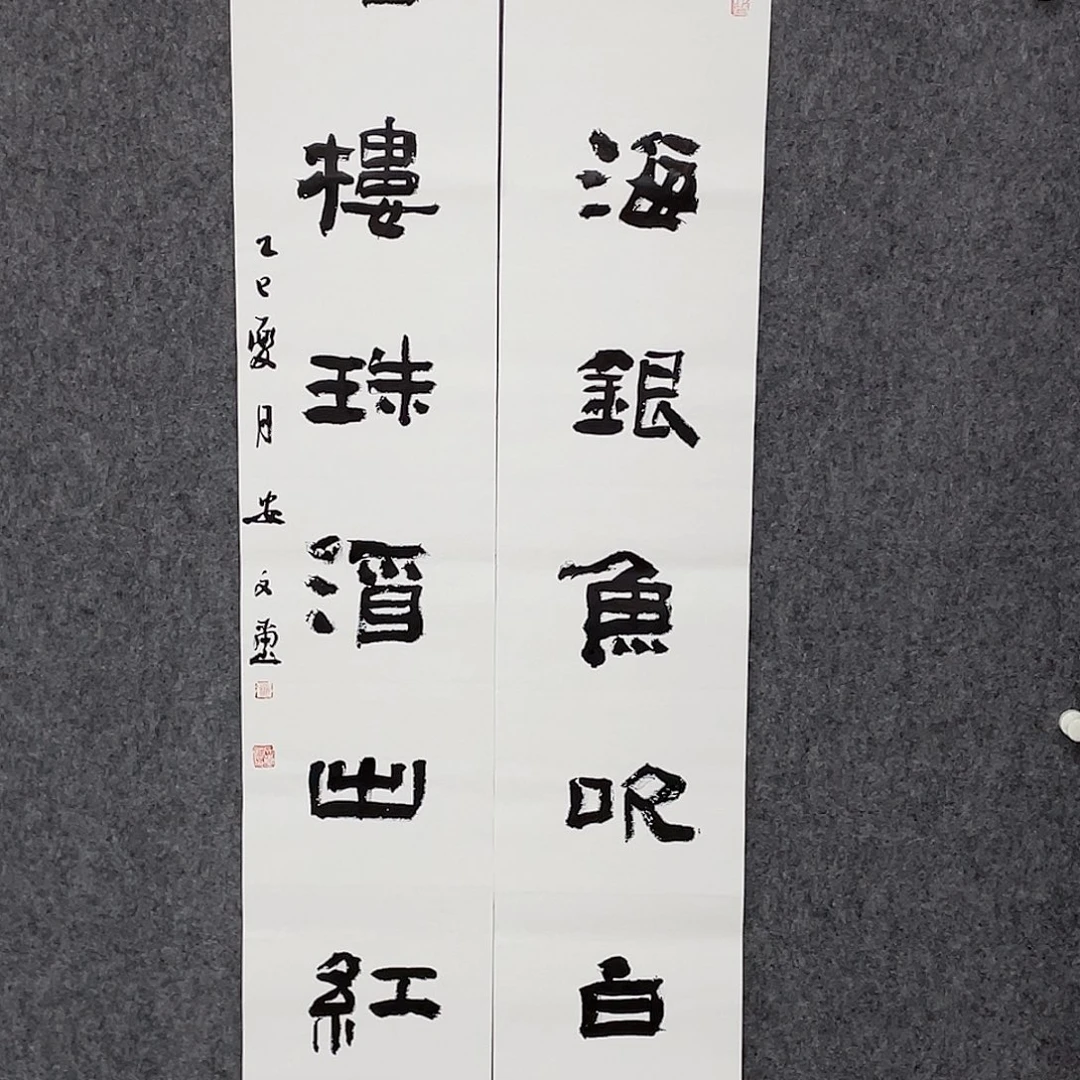 海銀魚吹白
樓珠酒出紅
乙巳夏月 安文